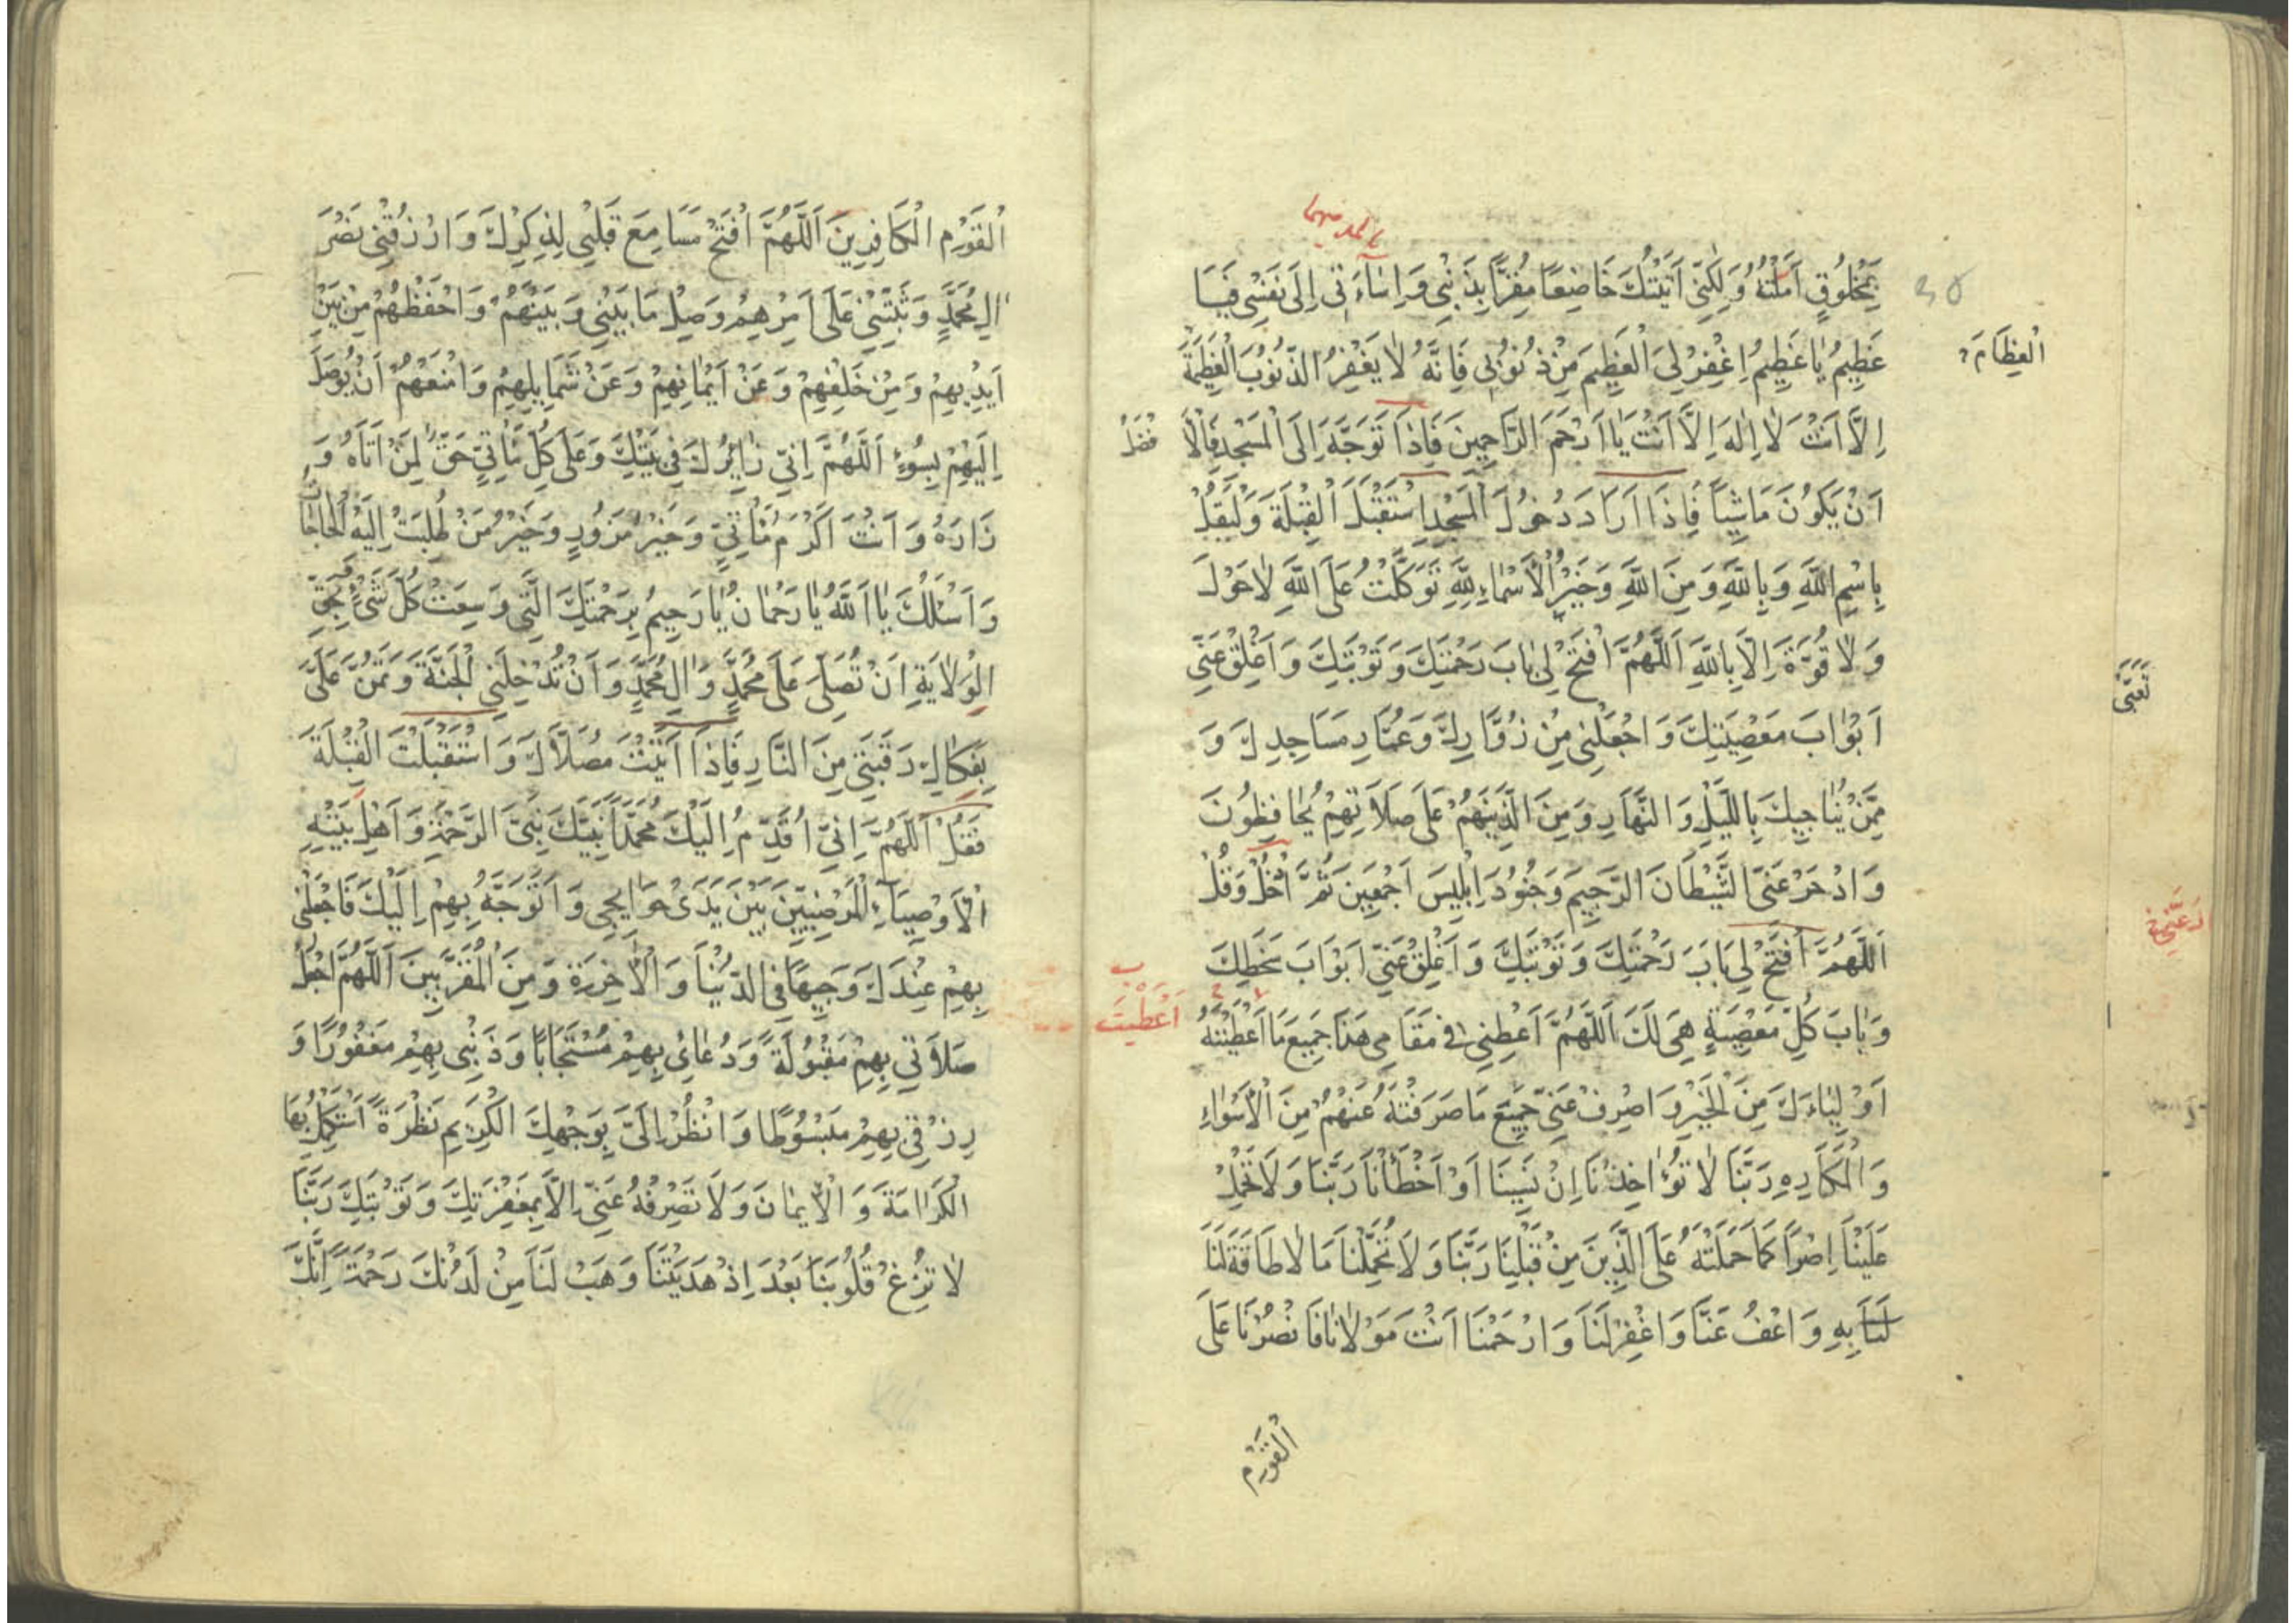 بِمَخْلُوقٍ اَمَّلْتُهُ وَلٰكِنّي اَتَيْتُكَ خَاضِعًا مُقِرًّا بِذَنْبِي وَاِسَاءَتي اِلَى نَفْسِي فَيَا
عَظِيمُ يَا عَظِيمُ اِغْفِرْ لِيَ الْعَظِيمَ مِنْ ذُنُوبي فَاِنَّهُ لَا يَغْفِرُ الذُّنُوبَ الْعَظِيمَةَ
الْعِظَامَ
اِلَّا اَنْتَ لَا اِلٰهَ اِلَّا اَنْتَ يَا اَرْحَمَ الرَّاحِمِينَ فَاِذَا تَوَجَّهَ اِلَى الْمَسْجِدِ فَالْاَ
فْضَلُ
اَنْ يَكُونَ مَاشِيًا فَاِذَا اَرَادَ دُخُولَ الْمَسْجِدِ اسْتَقْبَلَ الْقِبْلَةَ وَلْيَقُلْ
بِاسْمِ اللّٰهِ وَبِاللّٰهِ وَمِنَ اللّٰهِ وَخَيْرُ الْاَسْمَاءِ لِلّٰهِ تَوَكَّلْتُ عَلَى اللّٰهِ لَا حَوْلَ
وَلَا قُوَّةَ اِلَّا بِاللّٰهِ اَللّٰهُمَّ افْتَحْ لِي بَابَ رَحْمَتِكَ وَتَوْبَتِكَ وَاَغْلِقْ عَنّي
اَبْوَابَ مَعْصِيَتِكَ وَاجْعَلْنِي مِنْ زُوَّارِكَ وَعُمَّارِ مَسَاجِدِكَ وَ
مِمَّنْ يُنَاجِيكَ بِاللَّيْلِ وَالنَّهَارِ وَمِنَ الَّذِينَهُمْ عَلَى صَلَاتِهِمْ يُحَافِظُونَ
وَادْحَرْ عَنّي الشَّيْطَانَ الرَّجِيمَ وَجُنُودَ اِبْلِيسَ اَجْمَعِينَ ثُمَّ ادْخُلْ وَقُلْ
اَللّٰهُمَّ افْتَحْ لِي بَابَ رَحْمَتِكَ وَتَوْبَتِكَ وَاَغْلِقْ عَنّي اَبْوَابَ سَخَطِكَ
وَبَابَ كُلِّ مَعْصِيَةٍ هِيَ لَكَ اَللّٰهُمَّ اَعْطِنِي في مَقَامِي هَذَا جَمِيعَ مَا اَعْطَيْتَهُ
اَعْطَيْتَ
اَوْلِيَاءَكَ مِنَ الْخَيْرِ وَاصْرِفْ عَنّي جَمِيعَ مَا صَرَفْتَهُ عَنْهُمْ مِنَ الْاَسْوَاءِ
وَالْمَكَارِهِ رَبَّنَا لَا تُؤَاخِذْنَا اِنْ نَسِينَا اَوْ اَخْطَأْنَا رَبَّنَا وَلَا تَحْمِلْ
عَلَيْنَا اِصْرًا كَمَا حَمَلْتَهُ عَلَى الَّذِينَ مِنْ قَبْلِنَا رَبَّنَا وَلَا تُحَمِّلْنَا مَا لَا طَاقَةَ لَنَا
لَنَا بِهِ وَاعْفُ عَنَّا وَاغْفِرْ لَنَا وَارْحَمْنَا اَنْتَ مَوْلَانَا فَانْصُرْنَا عَلَى
الْقَوْمِ
الْقَوْمِ الْكَافِرِينَ اَللّٰهُمَّ افْتَحْ مَسَامِعَ قَلْبِي لِذِكْرِكَ وَارْزُقْنِي نَصْرَ
الِ مُحَمَّدٍ وَثَبِّتْنِي عَلَى اَمْرِهِمْ وَصِلْ مَا بَيْنِي وَبَيْنَهُمْ وَاحْفَظْهُمْ مِنْ بَيْنِ
اَيْدِيهِمْ وَمِنْ خَلْفِهِمْ وَعَنْ اَيْمَانِهِمْ وَعَنْ شَمَايِلِهِمْ وَامْنَعْهُمْ اَنْ يُوصَلَ
اِلَيْهِمْ بِسُوءٍ اَللّٰهُمَّ اِنّي زَايِرُكَ في بَيْتِكَ وَعَلَى كُلِّ مَأْتِيٍّ حَقٌّ لِمَنْ اَتَاهُ وَ
زَارَهُ وَاَنْتَ اَكْرَمُ مَأْتِيٍّ وَخَيْرُ مَزُورٍ وَخَيْرُ مَنْ طُلِبَتْ اِلَيْهِ الْحَاجَاتُ
وَاَسْئَلُكَ يَا اَللّٰهُ يَا رَحْمَانُ يَا رَحِيمُ بِرَحْمَتِكَ الَّتي وَسِعَتْ كُلَّ شَيْءٍ بِحَقِّ
الْوَلَايَةِ اَنْ تُصَلِّيَ عَلَى مُحَمَّدٍ وَالِ مُحَمَّدٍ وَاَنْ تُدْخِلَنِي الْجَنَّةَ وَتَمُنَّ عَلَيَّ
بِفَكَاكِ رَقَبَتي مِنَ النَّارِ فَاِذَا اَتَيْتَ مُصَلَّاكَ وَاسْتَقْبَلْتَ الْقِبْلَةَ
فَقُلْ اَللّٰهُمَّ اِنّي اُقَدِّمُ اِلَيْكَ مُحَمَّدًا نَبِيَّكَ نَبِيَّ الرَّحْمَةِ وَاَهْلَ بَيْتِهِ
الْاَوْصِيَاءَ الْمَرْضِيِّينَ بَيْنَ يَدَيْ حَوَايِجِي وَاَتَوَجَّهُ بِهِمْ اِلَيْكَ فَاجْعَلْنِي
بِهِمْ عِنْدَكَ وَجِيهًا في الدُّنْيَا وَالْاٰخِرَةِ وَمِنَ الْمُقَرَّبِينَ اَللّٰهُمَّ اجْعَلْ
صَلَاتي بِهِمْ مَقْبُولَةً وَدُعَائي بِهِمْ مُسْتَجَابًا وَذَنْبِي بِهِمْ مَغْفُورًا وَ
رِزْقي بِهِمْ مَبْسُوطًا وَانْظُرْ اِلَيَّ بِوَجْهِكَ الْكَرِيمِ نَظْرَةً اَسْتَكْمِلُ بِهَا
الْكَرَامَةَ وَالْاِيمَانَ وَلَا تَصْرِفْهُ عَنّي اِلَّا بِمَغْفِرَتِكَ وَتَوْبَتِكَ رَبَّنَا
لَا تُزِغْ قُلُوبَنَا بَعْدَ اِذْ هَدَيْتَنَا وَهَبْ لَنَا مِنْ لَدُنْكَ رَحْمَةً اِنَّكَ